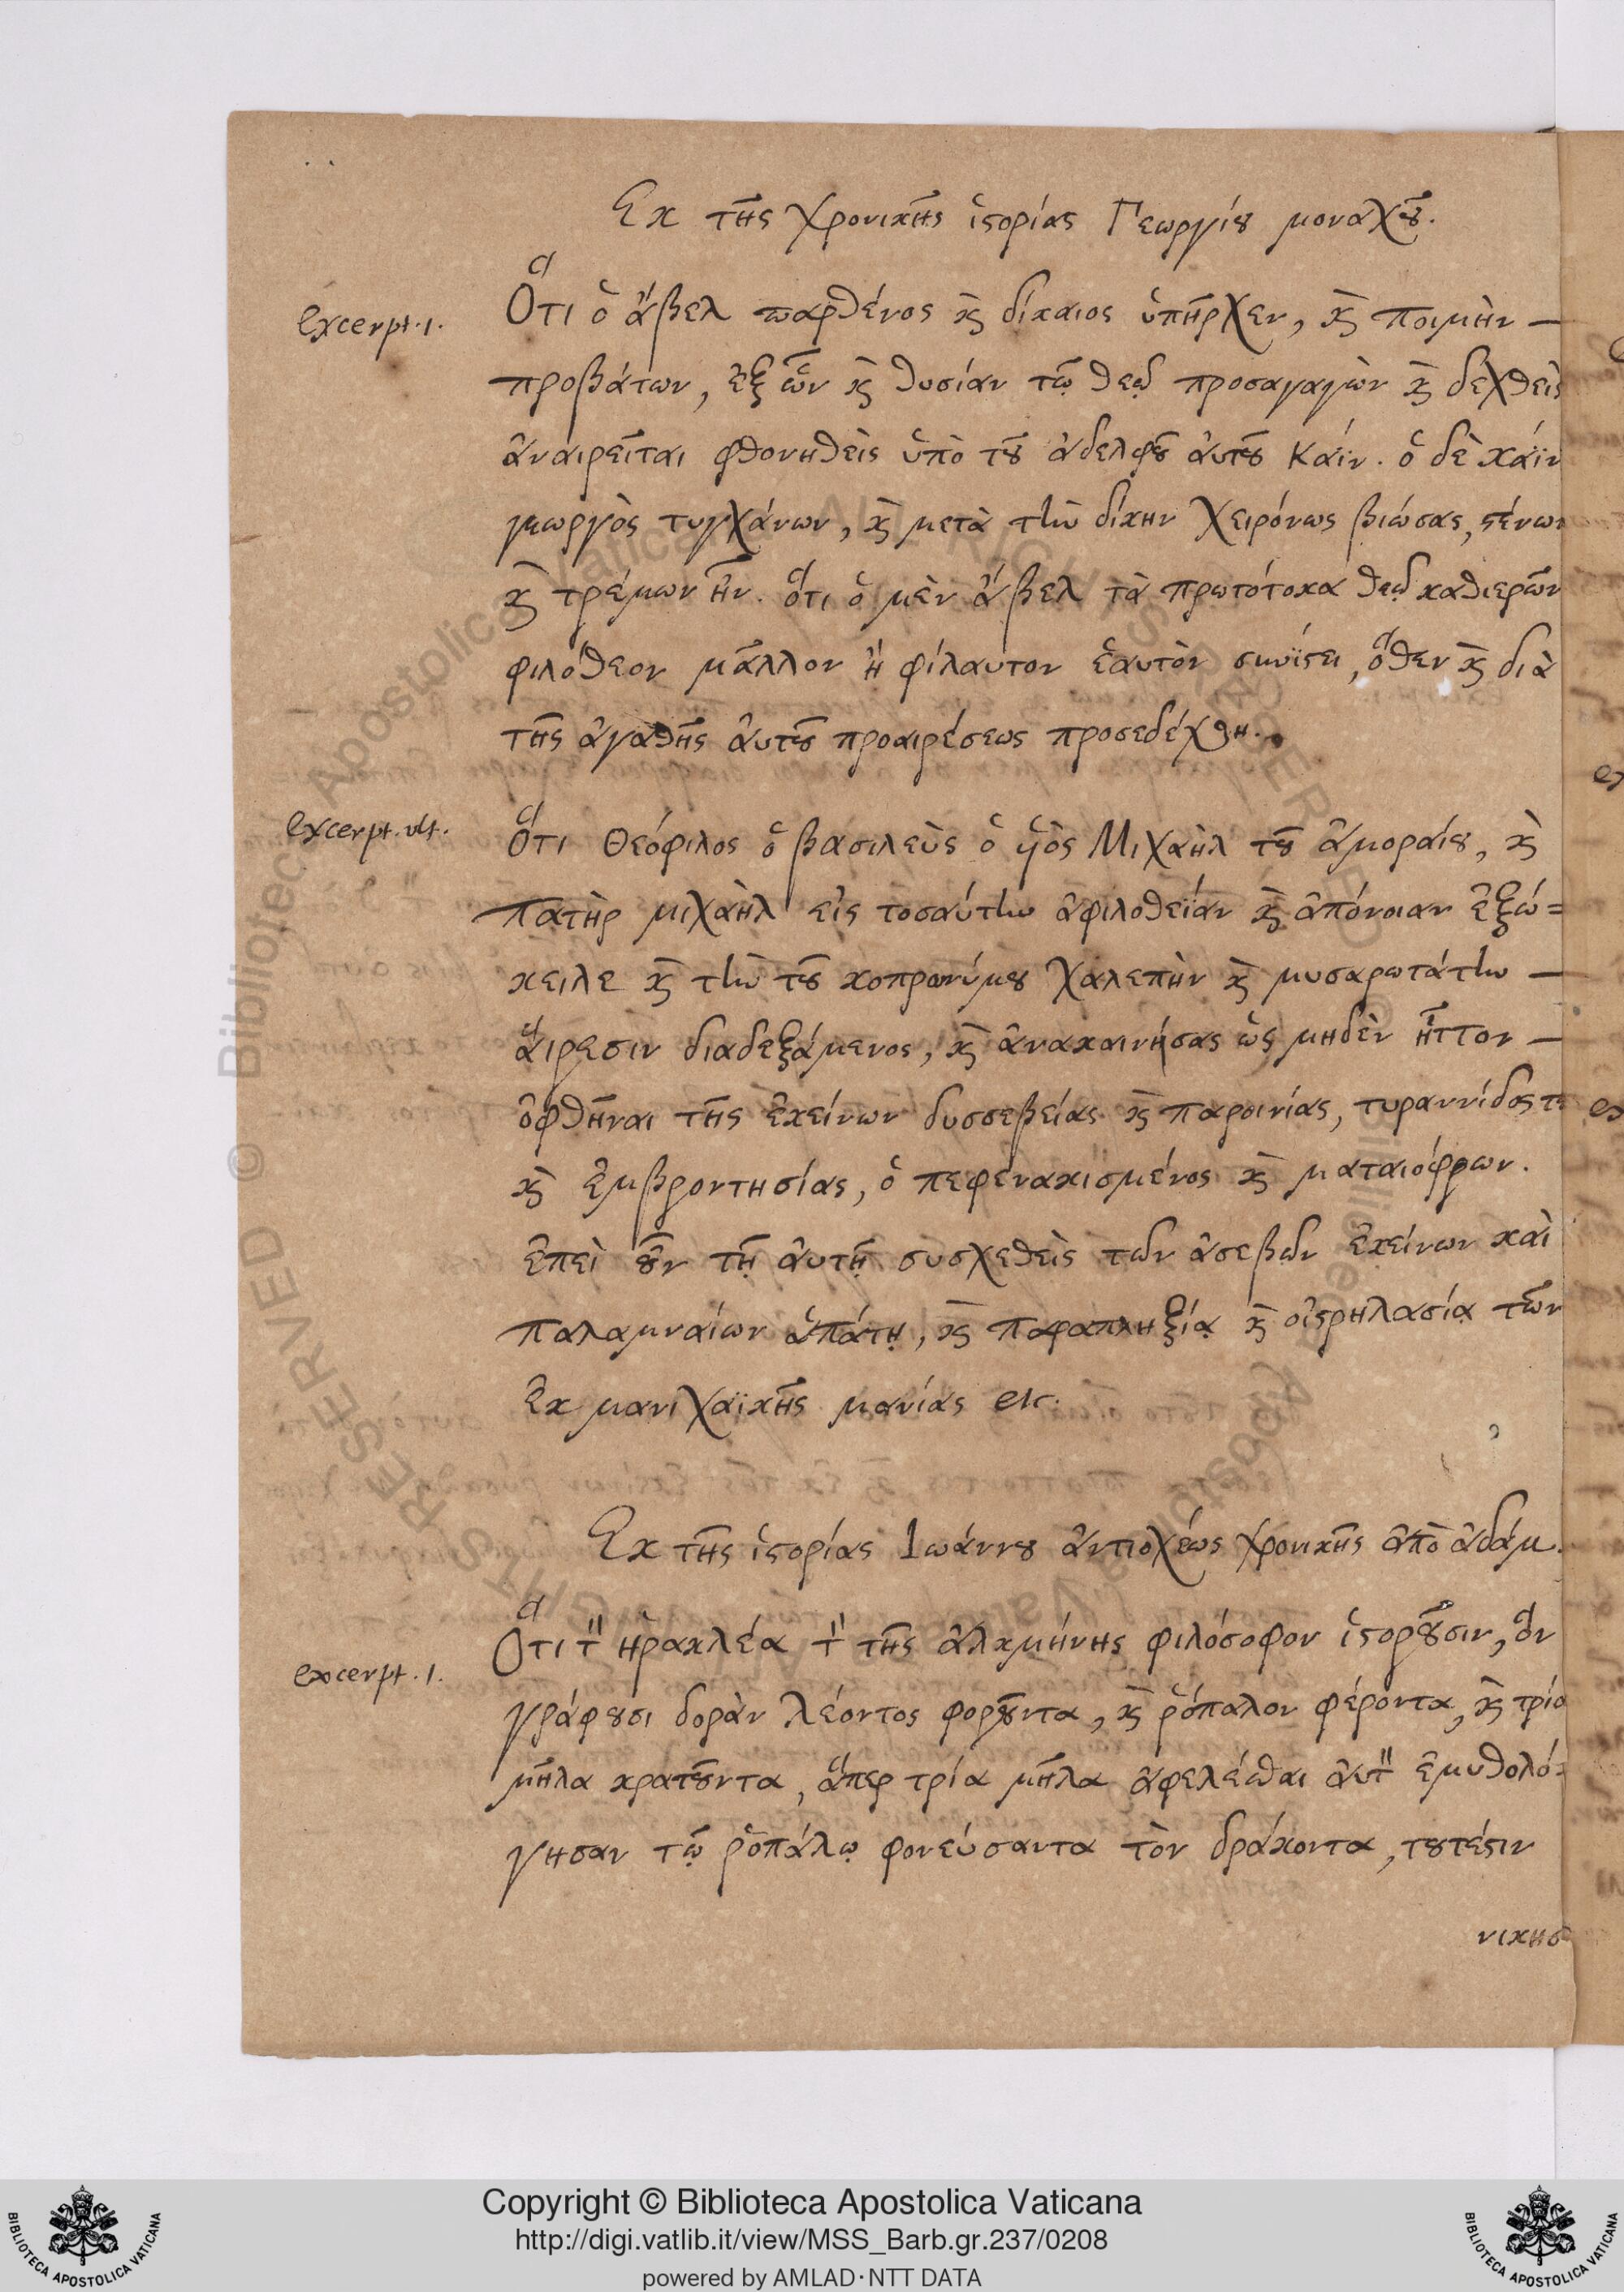 Ἐκ τῆς χρονικῆς ἱστορίας Γεωργίου μοναχοῦ.
excerpt. 1.
Ὅτι ὁ ἄβελ παρθένος καὶ δίκαιος ὑπῆρχεν, καὶ ποιμὴν –
προβάτων, ἐξ ὧν καὶ θυσίαν τῷ θεῷ προσαγαγὼν καὶ δεχθεὶς
ἀναιρεῖται φθονηθεὶς ὑπὸ τοῦ ἀδελφοῦ ἀυτοῦ Κάϊν. ὁ δὲ κάϊν
γεωργὸς τυγχάνων, καὶ μετὰ τὴν δίκην χειρόνως βιώσας, στένων
καὶ τρέμων ἦν. ὅτι ὁ μὲν ἄβελ τὰ πρωτότοκα θεῷ καθιερῶν
φιλόθεον μᾶλλον ἢ φίλαυτον ἑαυτὸν συνίστει, ὅθεν καὶ διὰ
τῆς ἀγαθῆς ἀυτοῦ προαιρέσεως προσεδέχθη.
excerpt. ult.
Ὅτι Θεόφιλος ὁ βασιλεὺς ὁ ὑιὸς Μιχαὴλ τοῦ ἀμοραίου, καὶ
πατὴρ μιχαὴλ εἰς τοσαύτην ἀφιλοθεΐαν καὶ ἀπόνοιαν ἐξώ=
κειλε καὶ τὴν τοῦ κοπρωνύμου χαλεπὴν καὶ μυσαρωτάτην –
ἅιρεσιν διαδεξάμενος, καὶ ἀνακαινήσας ὡς μηδὲν ἧττον –
ὀφθῆναι τῆς ἐκείνων δυσσεβείας καὶ παροινίας, τυραννίδος τε
καὶ ἐμβροντησίας, ὁ πεφενακισμένος καὶ ματαιόφρων.
ἐπεὶ οὖν τῇ ἀυτῇ συσχεθεὶς τῶν ἀσεβῶν ἐκείνων καὶ
παλαμναίων ἀπάτῃ, καὶ παραπληξίᾳ καὶ οἰστρηλασίᾳ τῶν
ἐκ μανιχαϊκῆς μανίας etc.
Ἐκ τῆς ἱστορίας Ἰωάννου ἀντιοχέως χρονικῆς ἀπὸ ἀδάμ.
excerpt. 1.
Ὅτι τὸν ἡρακλέα τὸν τῆς ἀλκμήνης φιλόσοφον ἱστοροῦσιν, ὃν
γράφουσι δορὰν λέοντος φοροῦντα, καὶ ῥόπαλον φέροντα, καὶ τρία
μῆλα κρατοῦντα, ἅπερ τρία μῆλα ἀφελέσθαι ἀυτὸν ἐμυθολό=
γησαν τῷ ῥοπάλῳ φονεύσαντα τὸν δράκοντα, τουτέστιν
νικησ
Copyright © Biblioteca Apostolica Vaticana
http://digi.vatlib.it/view/MSS_Barb.gr.237/0208
powered by AMLAD·NTT DATA
BIBLIOTECA APOSTOLICA VATICANA
BIBLIOTECA APOSTOLICA VATICANA